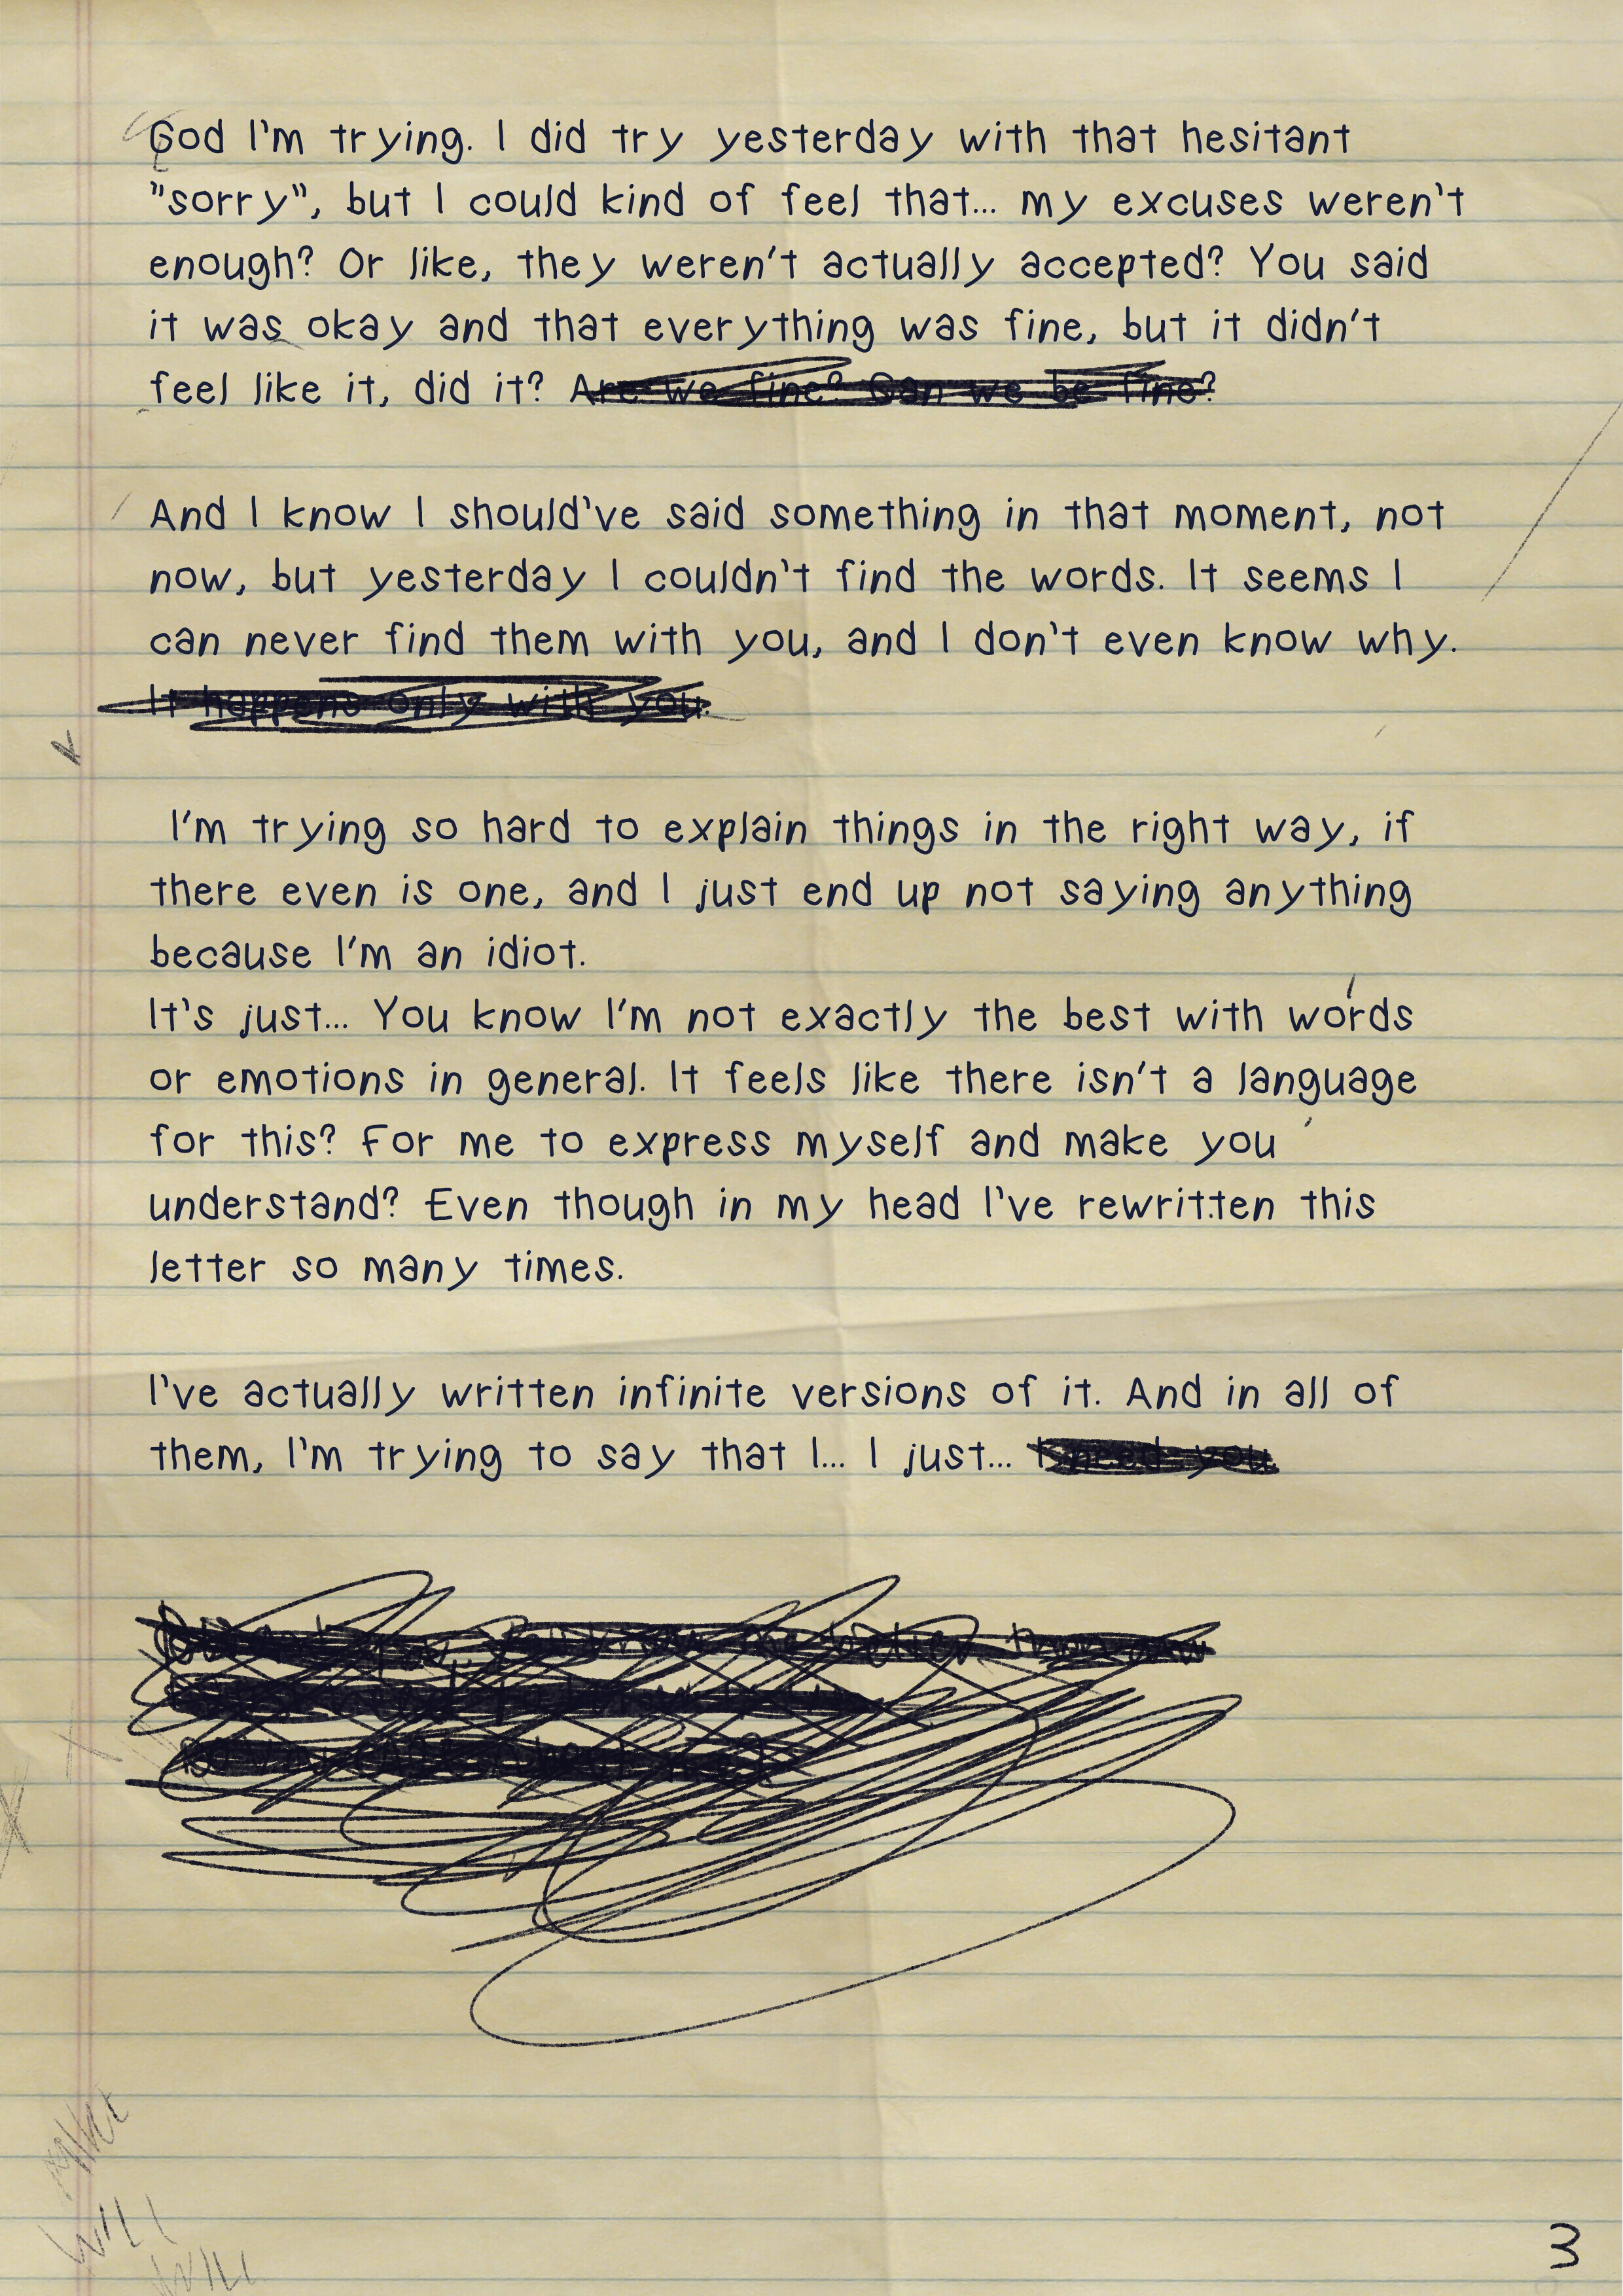 God I'm trying. I did try yesterday with that hesitant
"sorry", but I could kind of feel that... my excuses weren't
enough? Or like, they weren't actually accepted? You said
it was okay and that everything was fine, but it didn't
feel like it, did it? Are we fine? Can we be fine?
And I know I should've said something in that moment, not
now, but yesterday I couldn't find the words. It seems I
can never find them with you, and I don't even know why.
It happens only with you.
I'm trying so hard to explain things in the right way, if
there even is one, and I just end up not saying anything
because I'm an idiot.
It's just... You know I'm not exactly the best with words
or emotions in general. It feels like there isn't a language
for this? For me to express myself and make you
understand? Even though in my head I've rewritten this
letter so many times.
I've actually written infinite versions of it. And in all of
them, I'm trying to say that I... I just... I need you
know me better than
WILL
WILL
3